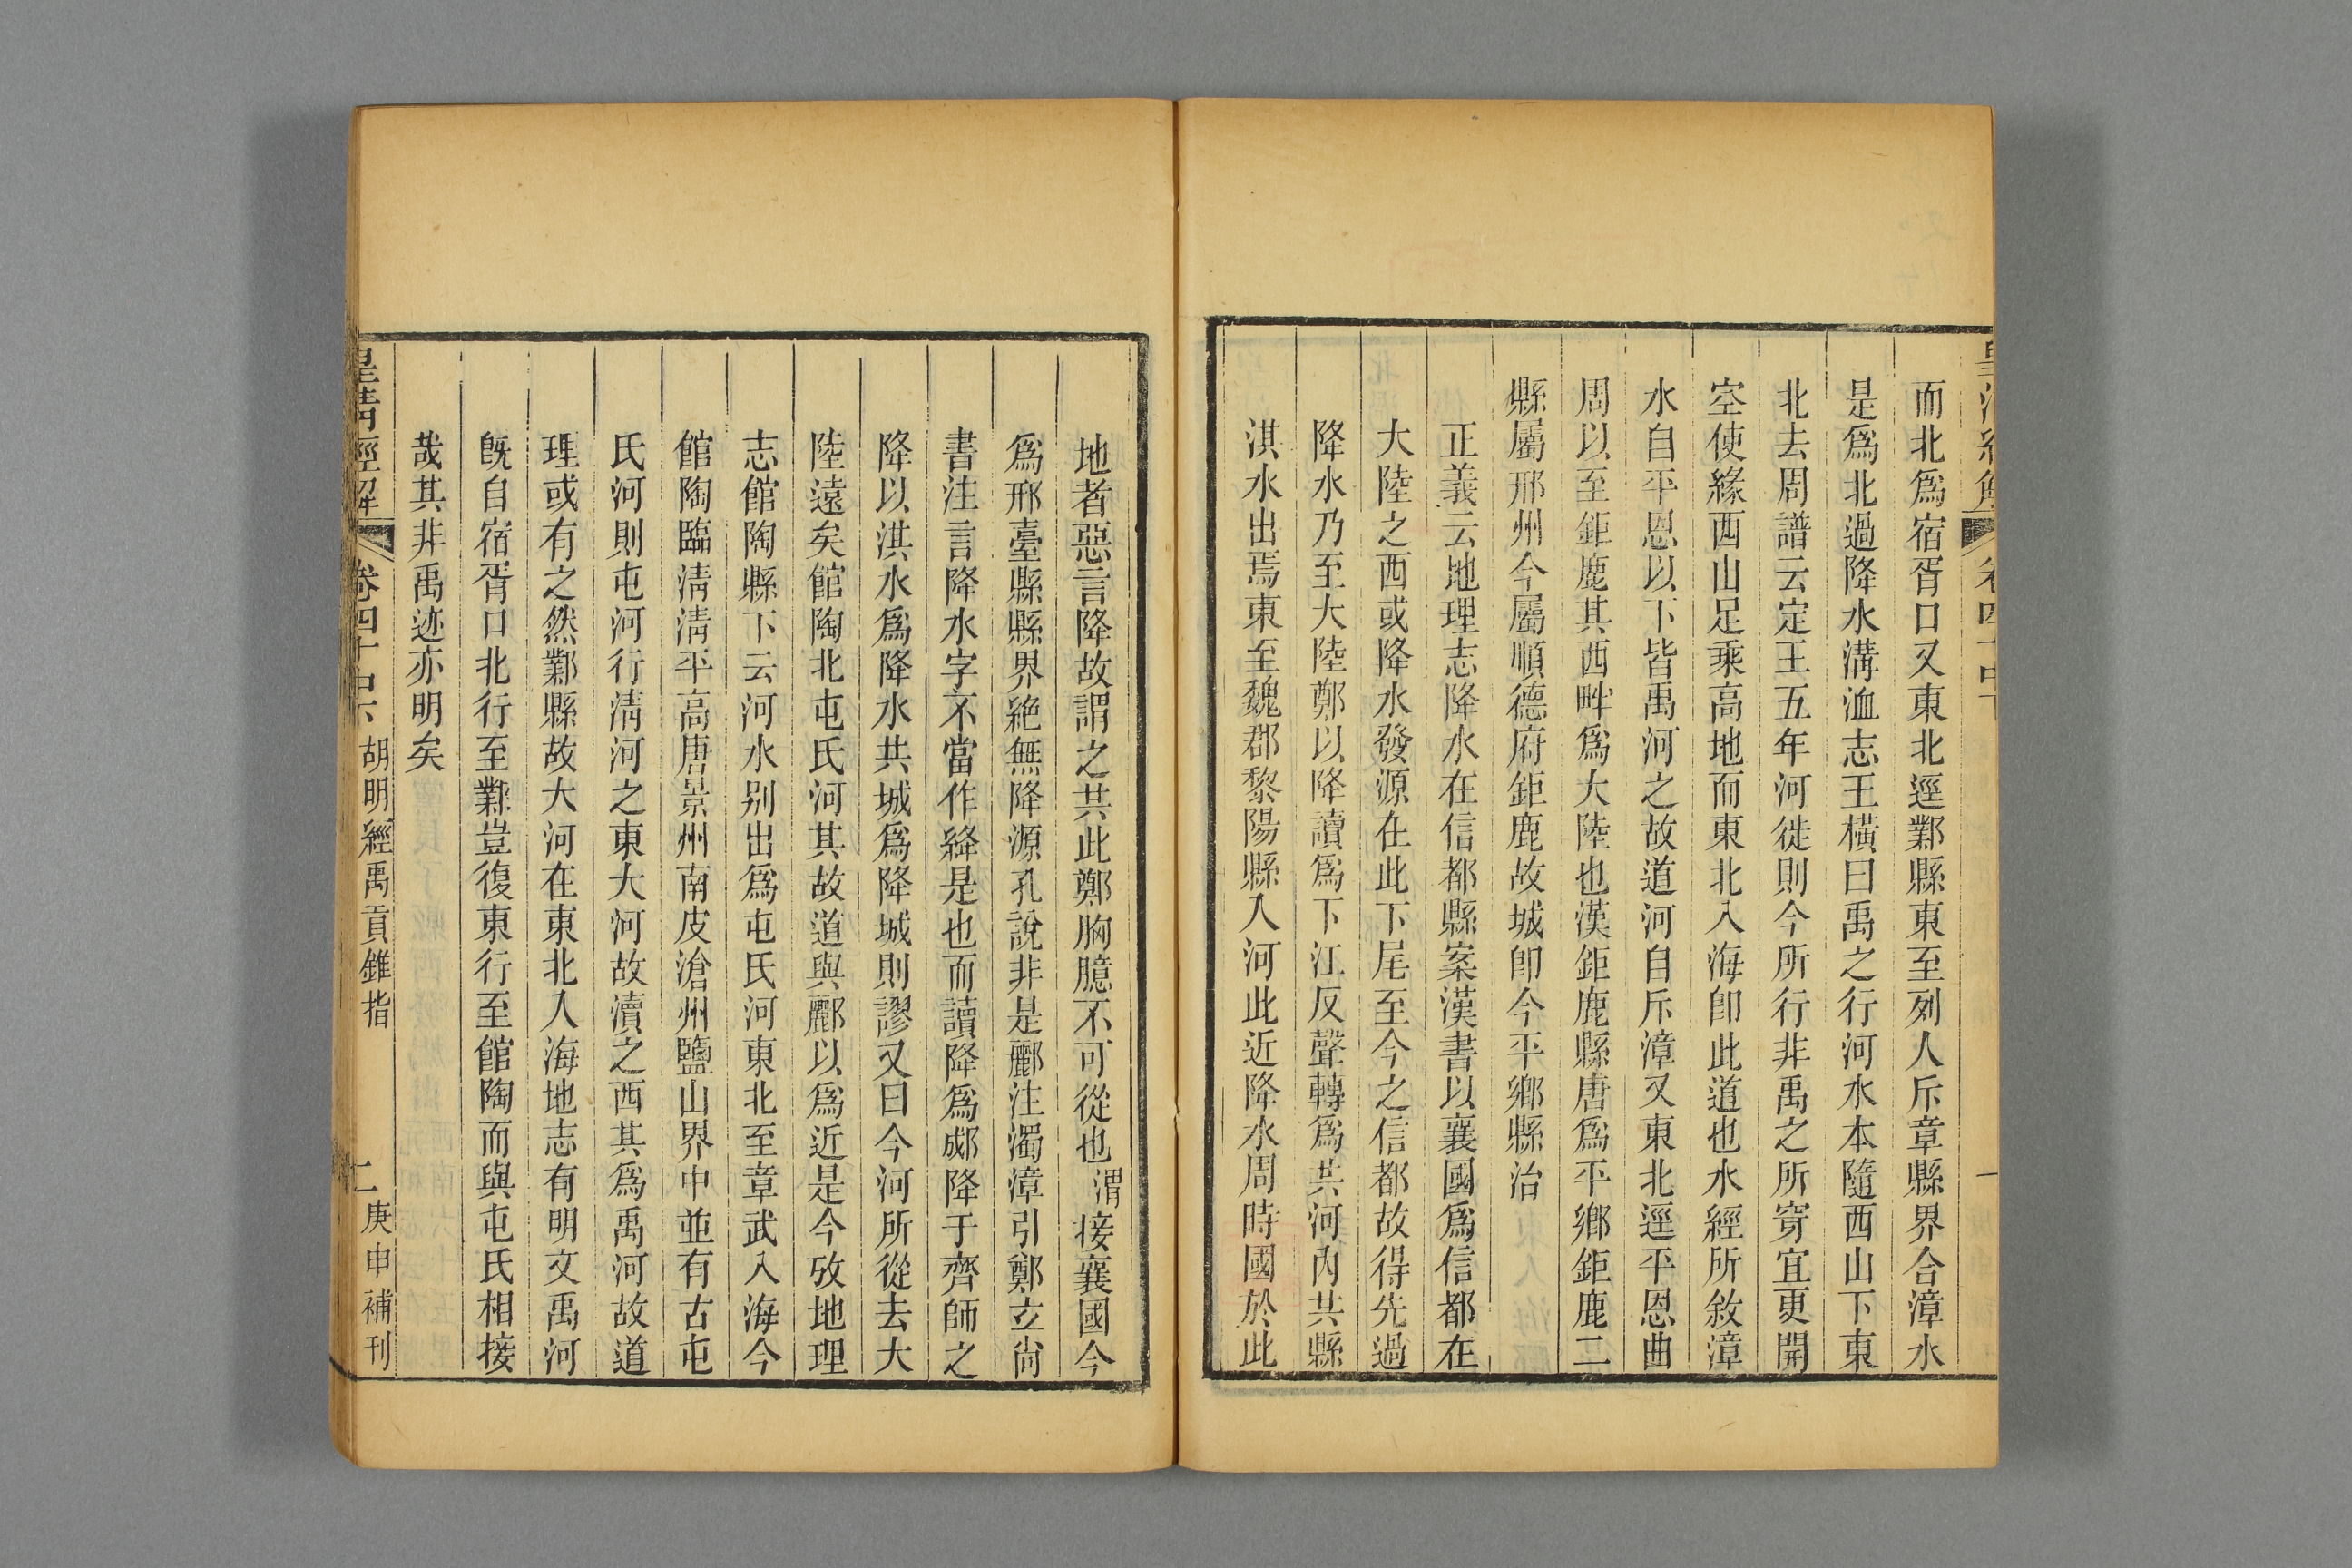 而北爲宿胥口又東北逕鄴縣東至列人斥章縣界合漳水
是爲北過降水溝洫志王橫曰禹之行河水本隨西山下東
北去周譜云定王五年河徙則今所行非禹之所穿宜更開
空使緣西山足乘高地而東北入海卽此道也水經所敘漳
水自平恩以下皆禹河之故道河自斥漳又東北逕平恩曲
周以至鉅鹿其西畔爲大陸也漢鉅鹿縣唐爲平鄕鉅鹿二
縣屬邢州今屬順德府鉅鹿故城卽今平鄕縣治
正義云地理志降水在信都縣案漢書以襄國爲信都在
大陸之西或降水發源在此下尾至今之信都故得先過
降水乃至大陸鄭以降讀爲下江反聲轉爲共河內共縣
淇水出焉東至魏郡黎陽縣入河此近降水周時國於此
地者惡言降故謂之共此鄭胸臆不可從也渭接襄國今
爲邢臺縣縣界絶無降源孔說非是酈注濁漳引鄭玄尙
書注言降水字不當作絳是也而讀降爲郕降于齊師之
降以淇水爲降水共城爲降城則謬又曰今河所從去大
陸遠矣館陶北屯氏河其故道與酈以爲近是今攷地理
志館陶縣下云河水別出爲屯氏河東北至章武入海今
館陶臨淸淸平高唐景州南皮滄州鹽山界中並有古屯
氏河則屯河行淸河之東大河故瀆之西其爲禹河故道
理或有之然鄴縣故大河在東北入海地志有明文禹河
旣自宿胥口北行至鄴豈復東行至館陶而與屯氏相接
哉其非禹迹亦明矣
皇淸經解 卷四十中下 胡明經禹貢錐指 二 庚申補刊